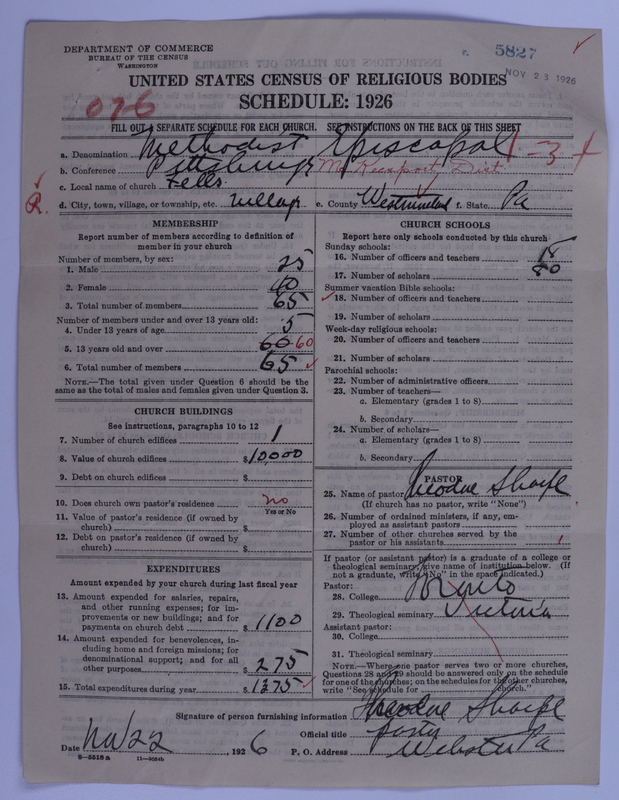 DEPARTMENT OF COMMERCE
BUREAU OF THE CENSUS
WASHINGTON
5827
NOV 23 1926
UNITED STATES CENSUS OF RELIGIOUS BODIES
SCHEDULE: 1926
076
FILL OUT A SEPARATE SCHEDULE FOR EACH CHURCH. SEE INSTRUCTIONS ON THE BACK OF THIS SHEET
a. Denomination Methodist Episcopal 1-3
b. Conference Pittsburgh McKeesport Dist
c. Local name of church Fells
R.
d. City, town, village, or township, etc. village e. County Westmoreland f. State Pa
MEMBERSHIP
Report number of members according to definition of member in your church
Number of members, by sex:
1. Male 25
2. Female 40
3. Total number of members 65
Number of members under and over 13 years old:
4. Under 13 years of age 5
5. 13 years old and over 60 60
6. Total number of members 65
NOTE.—The total given under Question 6 should be the same as the total of males and females given under Question 3.
CHURCH BUILDINGS
See instructions, paragraphs 10 to 12
7. Number of church edifices 1
8. Value of church edifices $10,000
9. Debt on church edifices $
10. Does church own pastor's residence no
Yes or No
11. Value of pastor's residence (if owned by church) $
12. Debt on pastor's residence (if owned by church) $
EXPENDITURES
Amount expended by your church during last fiscal year
13. Amount expended for salaries, repairs, and other running expenses; for improvements or new buildings; and for payments on church debt $1100
14. Amount expended for benevolences, including home and foreign missions; for denominational support; and for all other purposes $275
15. Total expenditures during year $1375
CHURCH SCHOOLS
Report here only schools conducted by this church
Sunday schools:
16. Number of officers and teachers 18
17. Number of scholars 80
Summer vacation Bible schools:
18. Number of officers and teachers
19. Number of scholars
Week-day religious schools:
20. Number of officers and teachers
21. Number of scholars
Parochial schools:
22. Number of administrative officers
23. Number of teachers—
a. Elementary (grades 1 to 8)
b. Secondary
24. Number of scholars—
a. Elementary (grades 1 to 8)
b. Secondary
PASTOR
25. Name of pastor Theodore Sharpe
(If church has no pastor, write "None")
26. Number of ordained ministers, if any, employed as assistant pastors
27. Number of other churches served by the pastor or his assistants 1
If pastor (or assistant pastor) is a graduate of a college or theological seminary, give name of institution below. (If not a graduate, write "No" in the space indicated.)
Pastor:
28. College Toronto
29. Theological seminary Victoria
Assistant pastor:
30. College
31. Theological seminary
NOTE.—Where one pastor serves two or more churches, Questions 28 and 29 should be answered only on the schedule for one of the churches; on the schedules for the other churches, write "See schedule for church."
Signature of person furnishing information Theodore Sharpe
Official title Pastor
Date Nov 22 1926 P. O. Address Webster Pa
8-5518a 11-9054b